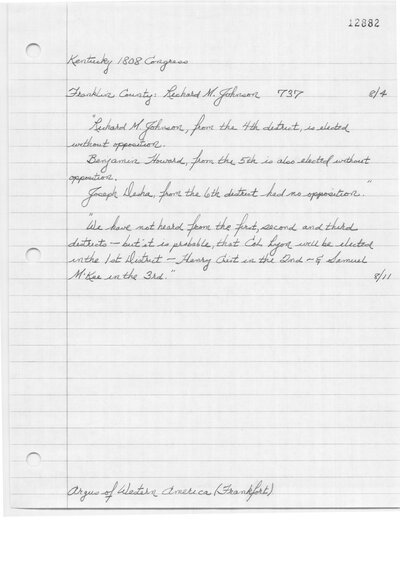 12882
Kentucky 1808 Congress
Franklin County: Richard M. Johnson 737 8/4
"Richard M. Johnson, from the 4th district, is elected
without opposition.
Benjamin Howard, from the 5th is also elected without
opposition.
Joseph Desha, from the 6th district had no opposition."
"We have not heard from the first, second and third
districts - but it is probable, that Col. Lyon will be elected
in the 1st District - Henry in the 2nd - & Samuel
McKee in the 3rd." 8/11
Argus of Western America (Frankfort)